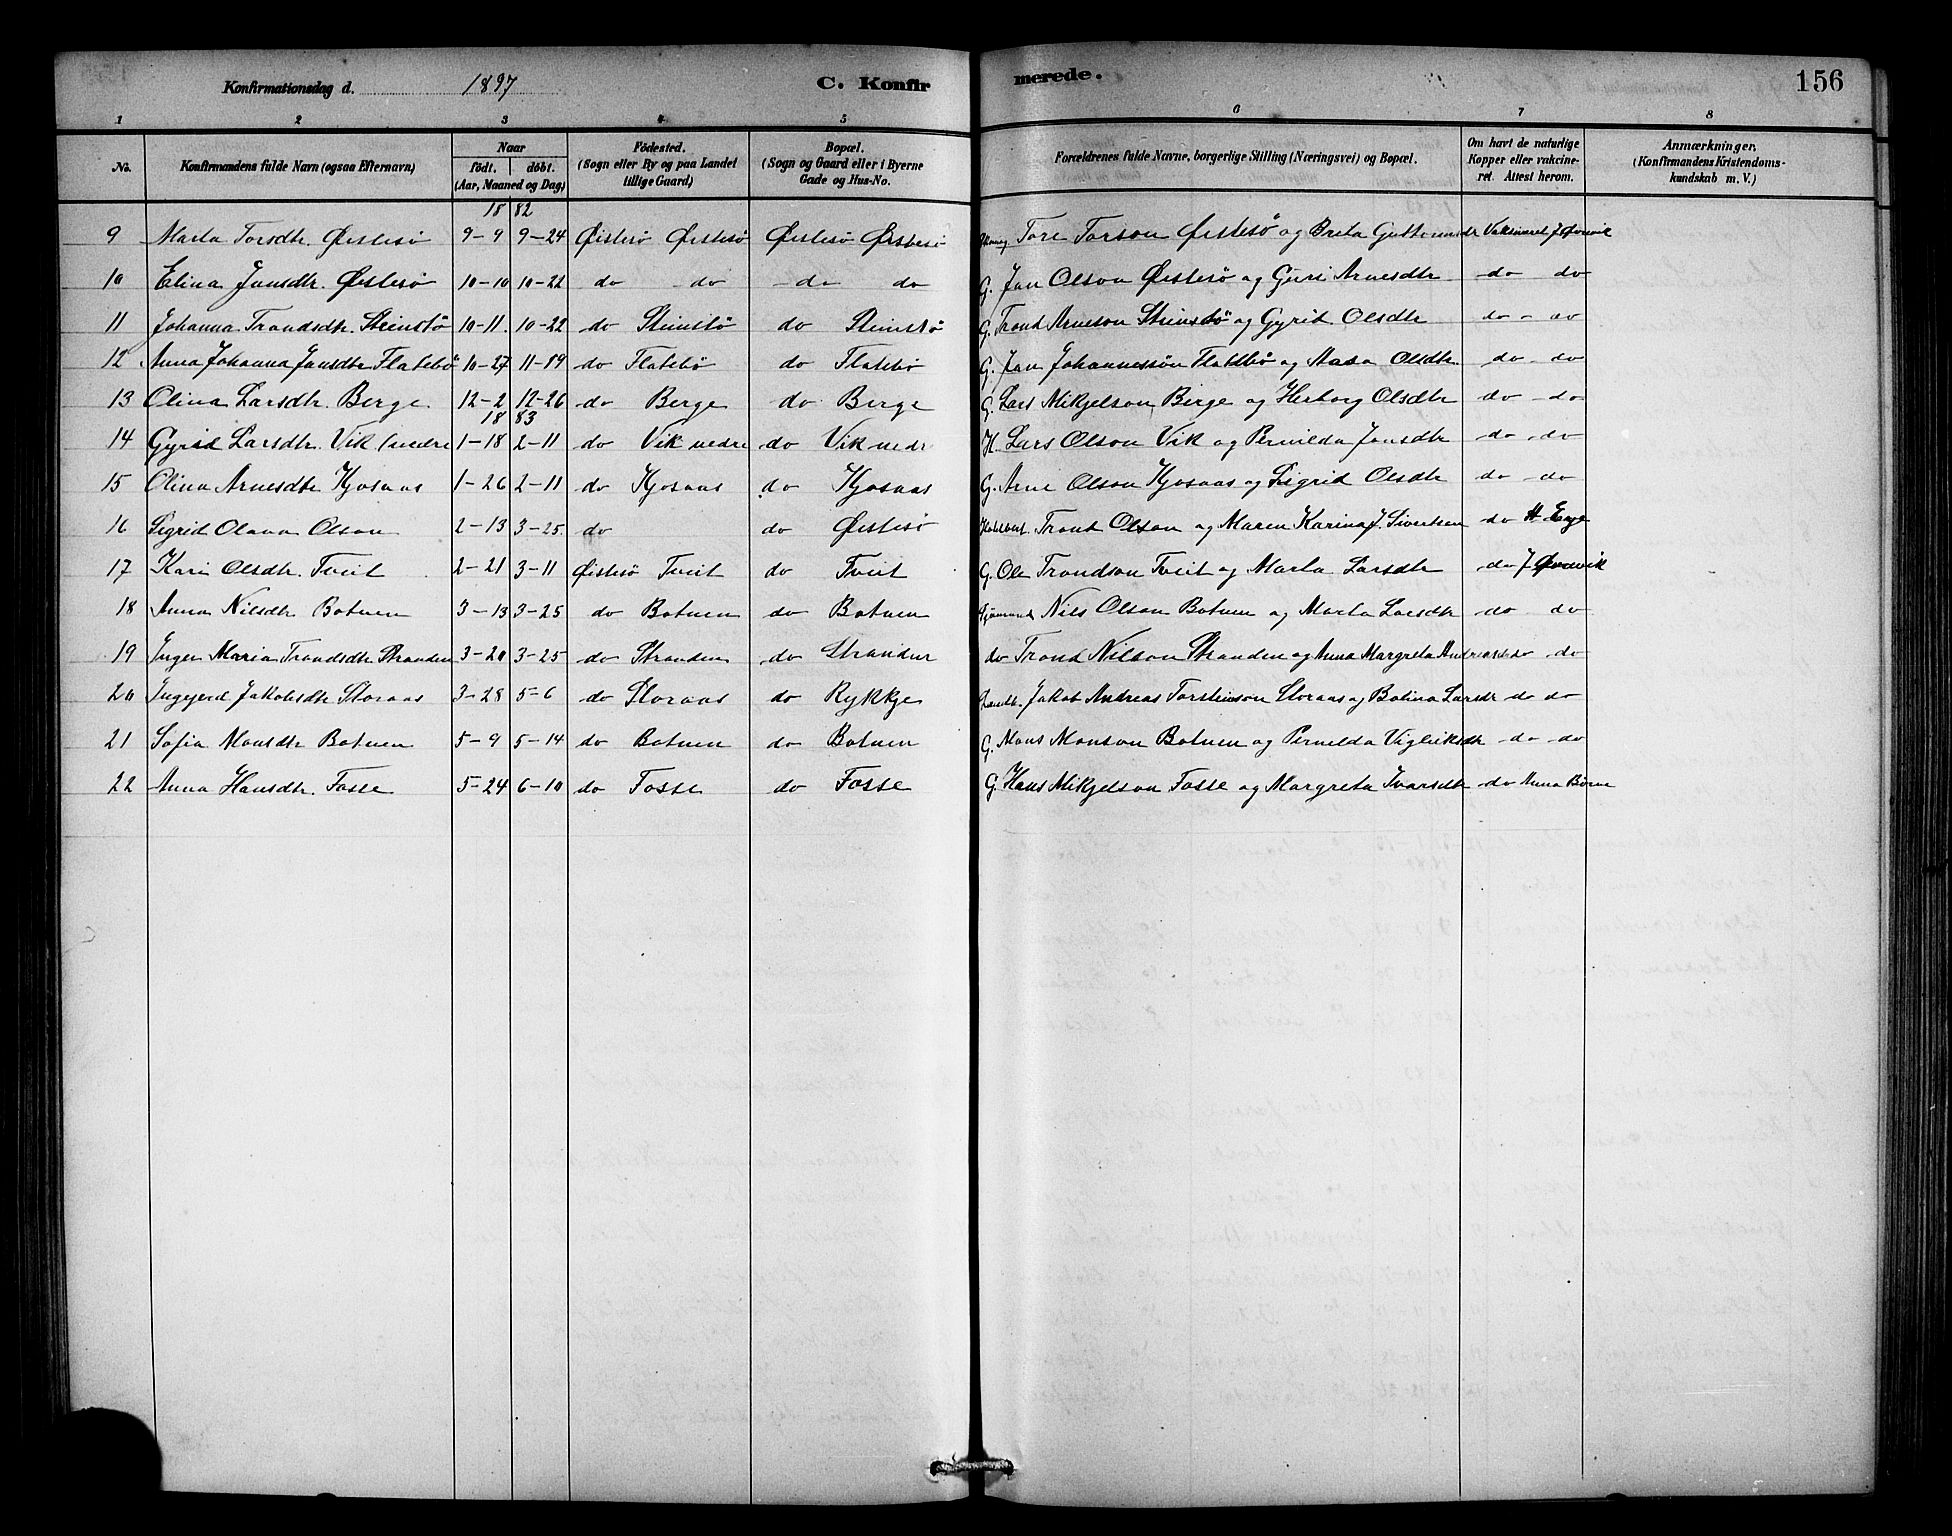 Konfirmationsdag d. 1897 C. Konfirmerede. 156
1 2 3 4 5 6 7 8
No. Konfirmandens fulde Navn (ogsaa Efternavn) Naar födt. döbt. (Aar, Maaned og Dag) Födested. (Sogn eller By og paa Landet tillige Gaard.) Bopæl. (Sogn og Gaard eller i Byerne Gade og Hus-No. Forældrenes fulde Navne, borgerlige Stilling (Næringsvei) og Bopæl. Om havt de naturlige Kopper eller vakcineret. Attest herom. Anmærkninger. (Konfirmandens Kristendomskundskab m. V.)
1882
9 Marta Torsdtr. Østesö 9-9 9-24 Östesö Östesö Östesö Östesö Tore Torson Østesö og Brita Guttormsdr Vaksineret J Øvrevik
10 Elina Jansdtr. Østesö 10-10 10-22 do do do do G. Jan Olson Østesö og Guri Arnesdtr do do
11 Johanna Trondsdtr. Steinstö 10-11. 10-22 do Steinstö do Steinstö G. Trond Arneson Steinstö og Gyrid Olsdtr do do
12 Anna Johanna Jansdtr Flatebö 10-27 11-19 do Flatebö do Flatebö G. Jan Johannesson Flatebö og Olsdtr. do do
13 Olina Larsdtr. Berge 12-2 12-26 do Berge do Berge G. Lars Mikjelson Berge og Herborg Olsdtr do do
1883
14 Gyrid Larsdtr. Vik (nedre 1-18 2-11 do Vik nedre do Vik nedr H. Lars Olson Vik og Pernilda Jansdtr do do
15 Olina Arnesdtr Kjosaas 1-26 2-11 do Kjosaas do Kjosaas G. Arne Olson Kjosaas og Sigrid Olsdtr do do
16 Sigrid Olava Olson 2-13 3-25. do do Østesö Trond Olson og Maren Karina J. Sivertsen do H Eye
17 Kari Olsdtr. Tveit 2-21 3-11 Östesö Tveit do Tveit G. Ole Trondson Tveit og Marta Larsdtr do J Øvrevik
18 Anna Nilsdtr Botnen 3-13 3-25 do Botnen do Botnen Sjömand Nils Olson Botnen og Marta Larsdtr do do
19 Inger Maria Trondsdtr Stranden 3-20 3-25 do Stranden do Stranden do Trond Nilson Stranden og Anna Margreta do do
20 Ingejerd Jakobsdtr Storaas 3-28 5-6 do Storaas do Rykkje Jakob Andreas Torsteinson Storaas og Botina Larsdr do do
21 Sofia Monsdtr Botnen 5-9 5-14 do Botnen do Botnen G. Mons Monson Botnen og Pernilda Vigleiksdr do do
22 Anna Hansdtr. Fosse 5-24 6-10 do Fosse do Fosse G Hans Mikjelson Fosse og Margreta Ivarsdtr do Anna Børve